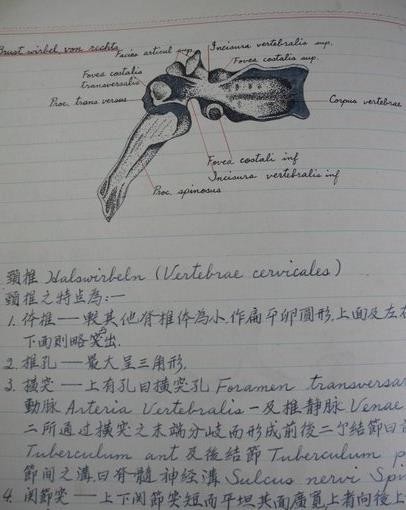 Brustwirbel von rechts
Facies articul sup.
Incisura vertebralis sup.
Fovea costalis sup.
Fovea costalis
transversalis
Proc. transversus
Corpus vertebrae
Fovea costali inf
Incisura vertebralis inf
Proc. spinosus
頸椎 Halswirbeln (Vertebrae cervicales)
頸椎之特点為:—
1. 体椎 — 較其他脊椎体為小,作扁平卵圓形,上面及左右
下面則略突出.
2. 椎孔 — 最大呈三角形.
3. 橫突 — 上有孔曰橫突孔 Foramen transversar
動脈 Arteria Vertebralis 一及椎静脉 Venae
二所通过橫突之末端分岐而形成前後二个結節曰
Tuberculum ant 及後結節 Tuberculum p
節间之溝曰脊髓神経溝 Sulcus nervi Spi
4. 関節突 — 上下関節突短而平坦其面廣寬上者向後上